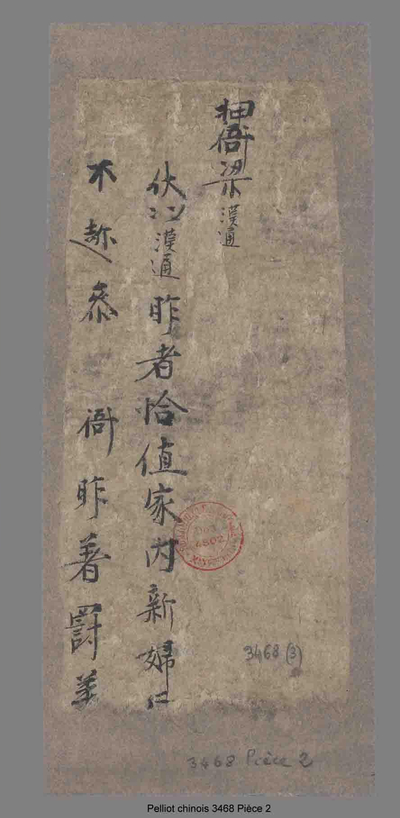 押衙梁漢通
伏以漢通昨者恰值家內新婦
不趂叅 衙昨著罰羊
3468 (3)
3468 Pièce 2
Pelliot chinois 3468 Pièce 2